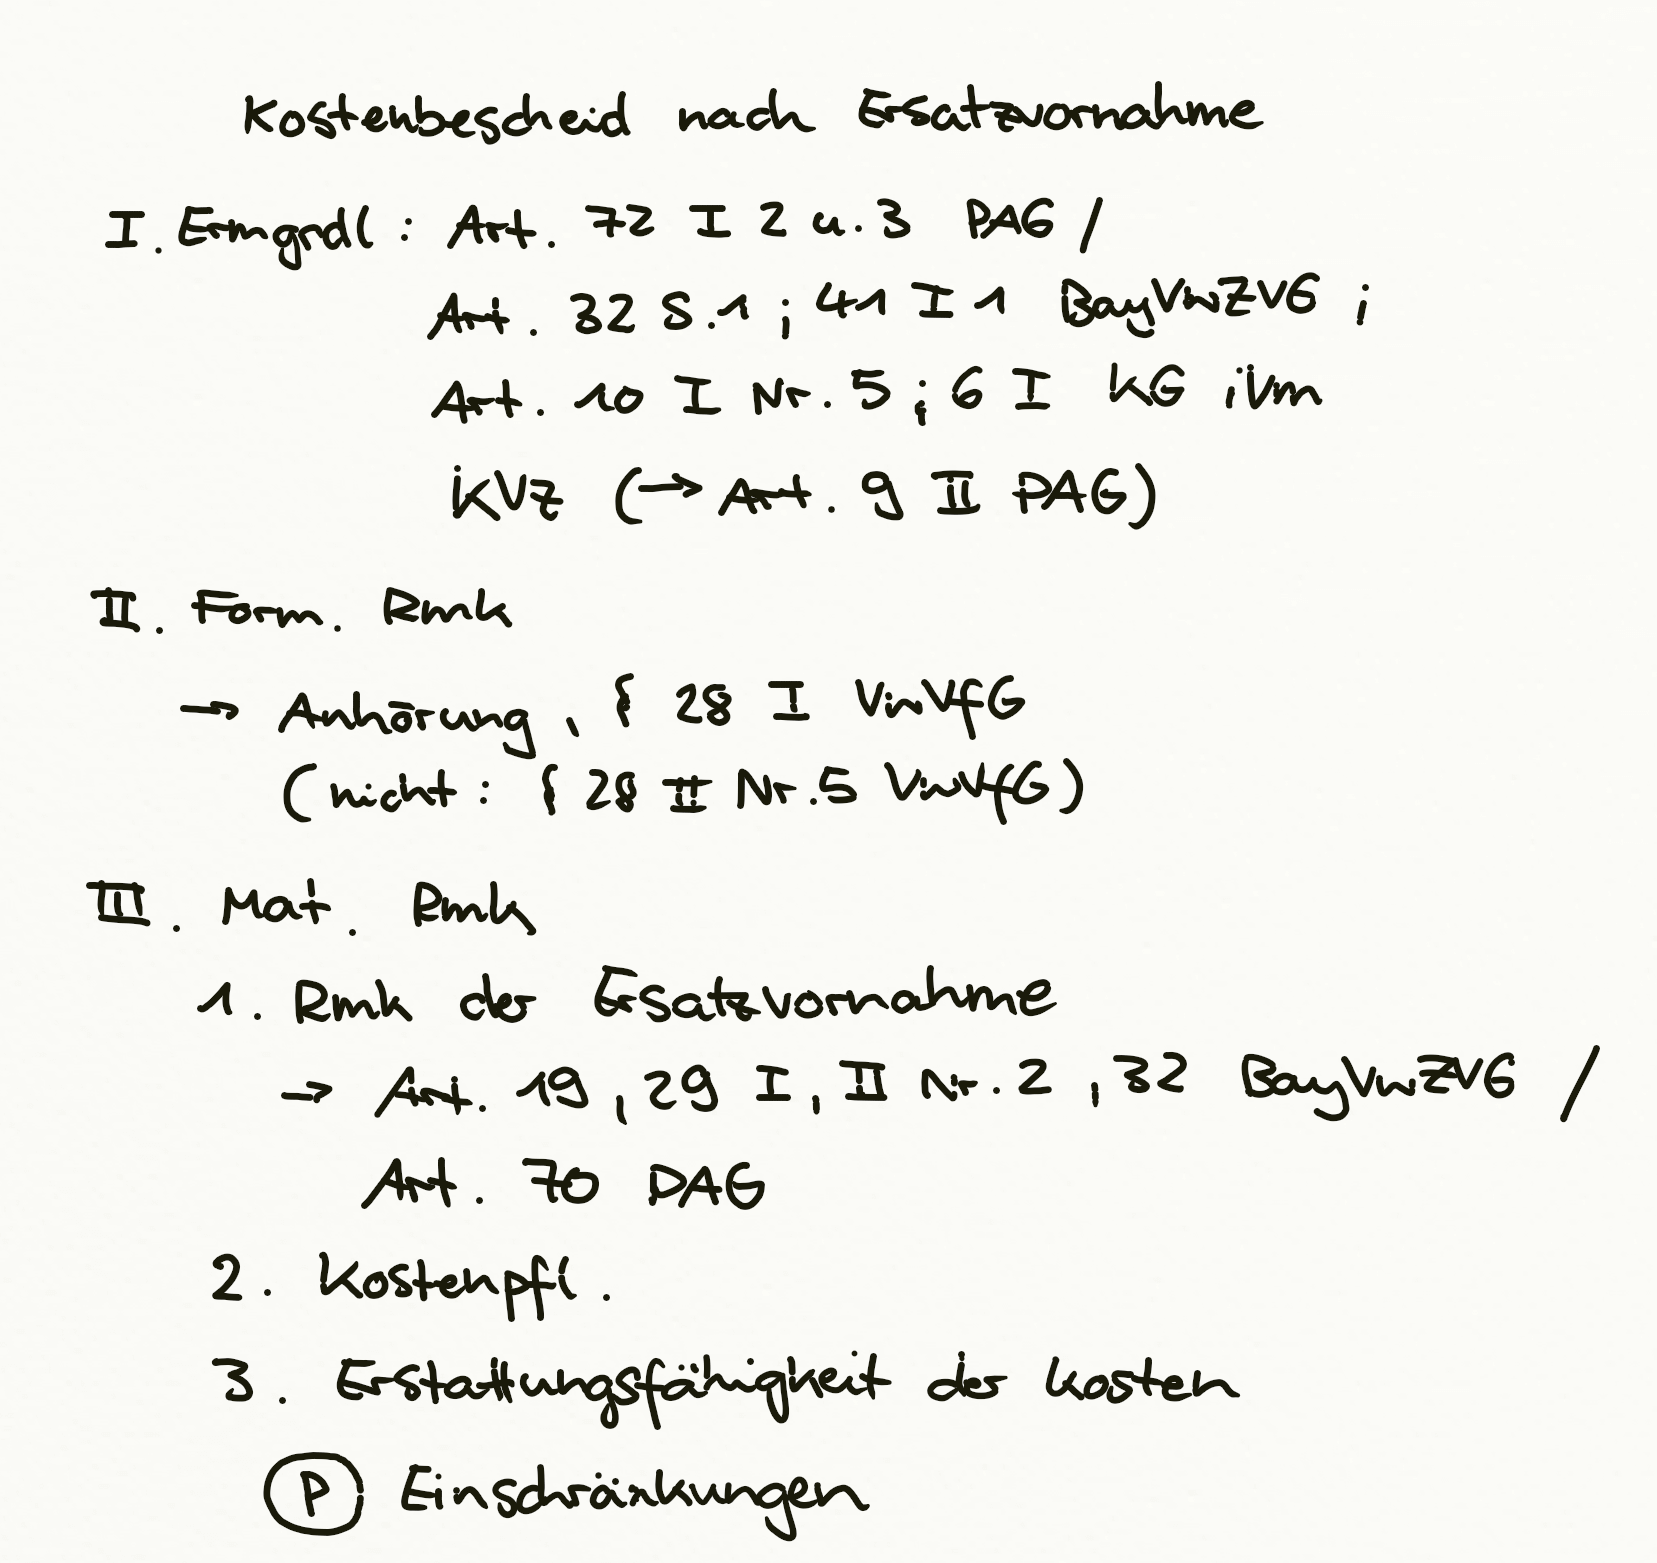 Kostenbescheid nach Ersatzvornahme
I. Ermgrdl: Art. 72 I 2 u. 3 PAG /
Art. 32 S.1 ; 41 I 1 BayVwZVG ;
Art. 10 I Nr. 5 ; 6 I KG iVm
KVz (→ Art. 9 II PAG)
II. Form. Rmk
→ Anhörung, § 28 I VwVfG
(nicht: § 28 II Nr.5 VwVfG)
III. Mat. Rmk
1. Rmk der Ersatzvornahme
→ Art. 19, 29 I, II Nr. 2, 32 BayVwZVG /
Art. 70 PAG
2. Kostenpfl.
3. Erstattungsfähigkeit der Kosten
P Einschränkungen